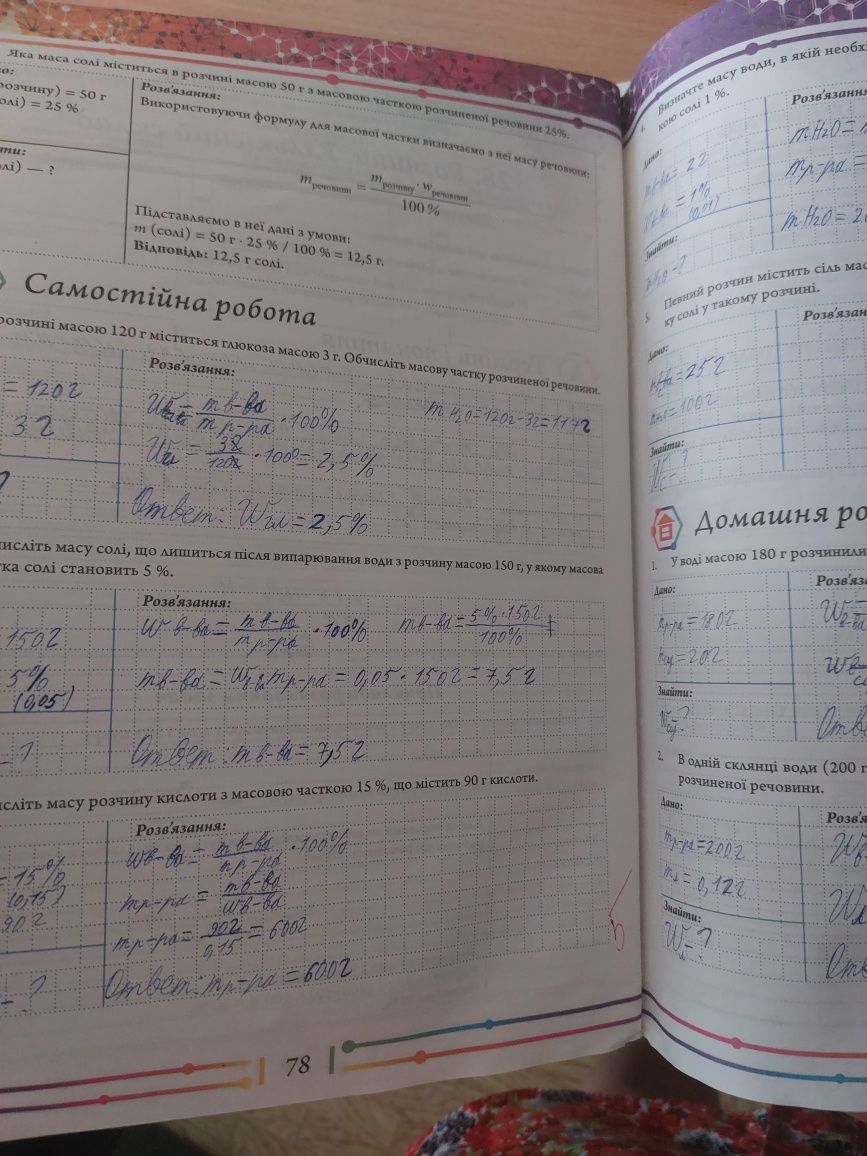 Яка маса солі міститься в розчині масою 50 г з масовою часткою розчиненої речовини 25%.
но:
розчину) = 50 г
солі) = 25 %
ти:
лі) — ?
Розв'язання:
Використовуючи формулу для масової частки визначаємо з неї масу речовини:
m речовини = m розчину · w речовини / 100 %
Підставляємо в неї дані з умови:
m (солі) = 50 г · 25 % / 100 % = 12,5 г.
Відповідь: 12,5 г солі.
Самостійна робота
розчині масою 120 г міститься глюкоза масою 3 г. Обчисліть масову частку розчиненої речовини.
= 120г
3г
?
Розв'язання:
= m в-ва / m р-ра · 100%
m H2O = 120г - 3г = 117г
= 3г / 120г · 100% = 2,5%
Ответ: W гл = 2,5%
числіть масу солі, що лишиться після випарювання води з розчину масою 150 г, у якому масова
тка солі становить 5 %.
150г
5%
(0,05)
- ?
Розв'язання:
W в-ва = m в-ва / m р-ра · 100%
m в-ва = 5% · 150г / 100%
m в-ва = W в-ва m р-ра = 0,05 · 150г = 7,5г
Ответ: m в-ва = 7,5г
ісліть масу розчину кислоти з масовою часткою 15 %, що містить 90 г кислоти.
= 15%
(0,15)
90г
- ?
Розв'язання:
W в-ва = m в-ва / m р-ра · 100%
m р-ра = m в-ва / W в-ва
m р-ра = 90г / 0,15 = 600г
Ответ: m р-ра = 600г
78
4. Визначте масу води, в якій необхі
кою солі 1 %.
Дано:
m в-ва = 2г
= 1%
(0,01)
Знайти:
m H2O - ?
Розв'язання
m H2O =
m р-ра =
m H2O = 20
5. Певний розчин містить сіль мас
ку солі у такому розчині.
Дано:
= 25г
= 100г
Знайти:
W - ?
Розв'язан
Домашня ро
1. У воді масою 180 г розчинили
Дано:
m р-ра = 180г
= 20г
Знайти:
- ?
Розв'яза
W
W
Отве
2. В одній склянці води (200 г
розчиненої речовини.
Дано:
m р-ра = 200г
m л = 0,12г
Знайти:
W л - ?
Розв'я
W
W
Отв